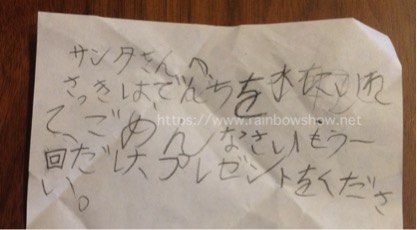 サンタさんへ
さっきは、でんちを
て、ごめんなさい。もう一
https://www.rainbowshow.net
回だけ、プレゼントをくださ
い。